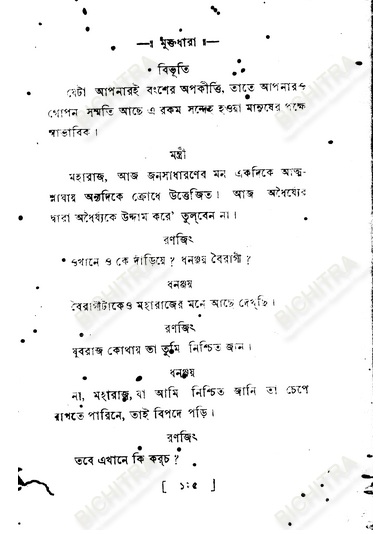 —॥ মুক্তধারা ॥—
বিভূতি
যেটা আপনারই বংশের অপকীর্ত্তি, তাতে আপনারও
গোপন সম্মতি আছে এ রকম সন্দেহ হওয়া মানুষের পক্ষে
স্বাভাবিক।
মন্ত্রী
মহারাজ, আজ জনসাধারণের মন একদিকে আত্ম-
শ্লাঘায় অন্যদিকে ক্রোধে উত্তেজিত। আজ অধৈর্য্যের
দ্বারা অধৈর্য্যকে উদ্দাম করে' তুল্‌বেন না।
রণজিৎ
ওখানে ও কে দাঁড়িয়ে? ধনঞ্জয় বৈরাগী?
ধনঞ্জয়
বৈরাগীটাকেও মহারাজের মনে আছে দেখ্‌চি।
রণজিৎ
যুবরাজ কোথায় তা তুমি নিশ্চিত জান।
ধনঞ্জয়
না, মহারাজ, যা আমি নিশ্চিত জানি তা চেপে
রাখতে পারিনে, তাই বিপদে পড়ি।
রণজিৎ
তবে এখানে কি করচ?
[ ১০৫ ]
BICHITRA
BICHITRA
BICHITRA
BICHITRA
BICHITRA
BICHITRA